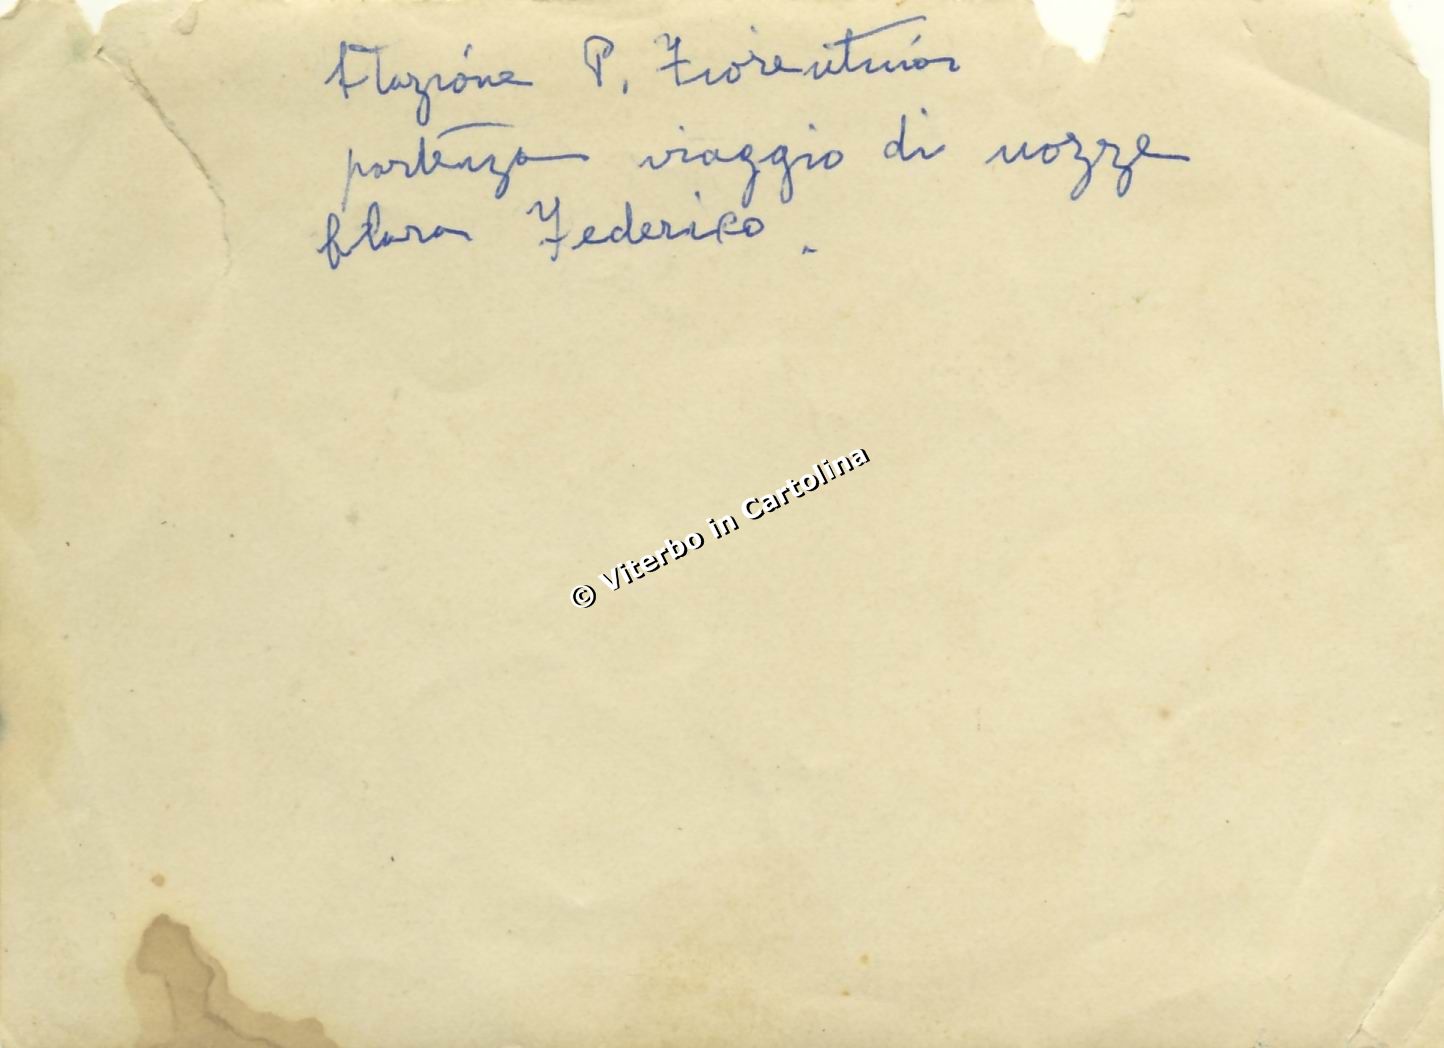 Stazione P. Fiorentina
partenza viaggio di nozze
Clara Federico.
© Viterbo in Cartolina